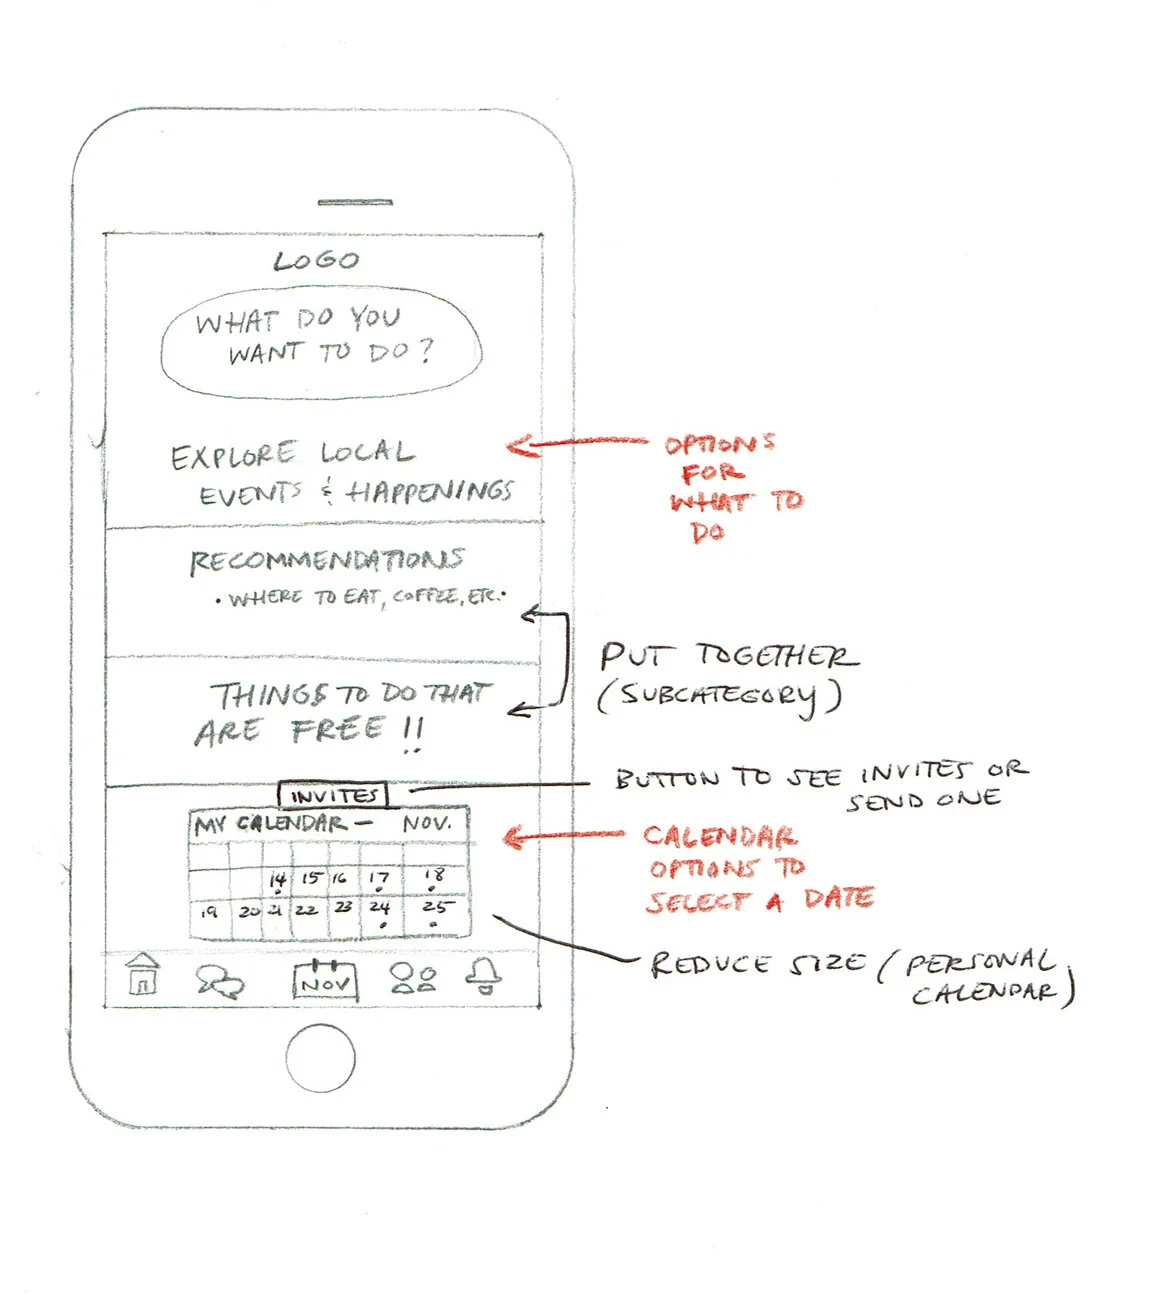 LOGO
WHAT DO YOU
WANT TO DO?
EXPLORE LOCAL
EVENTS & HAPPENINGS
RECOMMENDATIONS
• WHERE TO EAT, COFFEE, ETC.•
THINGS TO DO THAT
ARE FREE!!
INVITES
MY CALENDAR — NOV.
14 15 16 17 18
19 20 21 22 23 24 25
NOV
OPTIONS
FOR
WHAT TO
DO
PUT TOGETHER
(SUBCATEGORY)
BUTTON TO SEE INVITES OR
SEND ONE
CALENDAR
OPTIONS TO
SELECT A DATE
REDUCE SIZE (PERSONAL
CALENDAR)